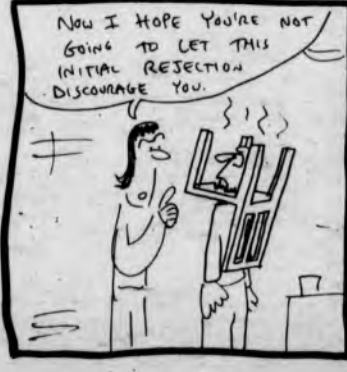 NOW I HOPE YOU'RE NOT
GOING TO LET THIS
INITIAL REJECTION
DISCOURAGE YOU.